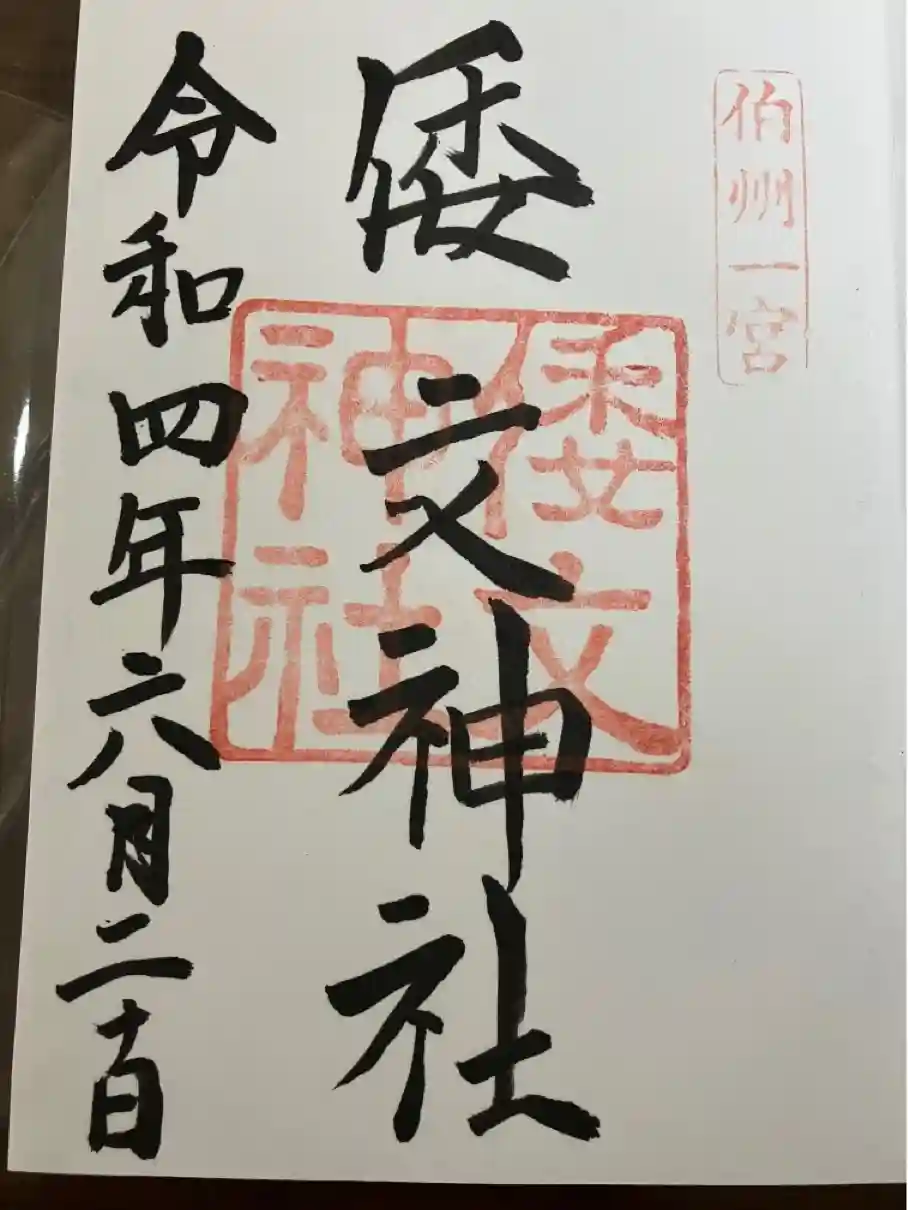 伯州一宮
倭文神社
倭文
神社
令和四年六月二十日